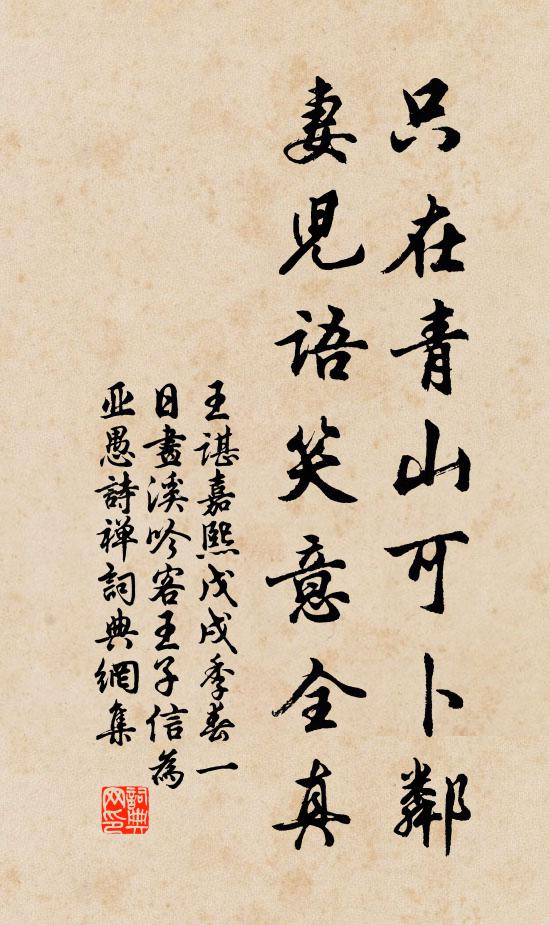 只在青山可卜鄰
妻児語笑意全真
王諶嘉熙戊戌季春一
日畫溪吟客王子信為
亚愚詩禅詞典網集
詞典网印